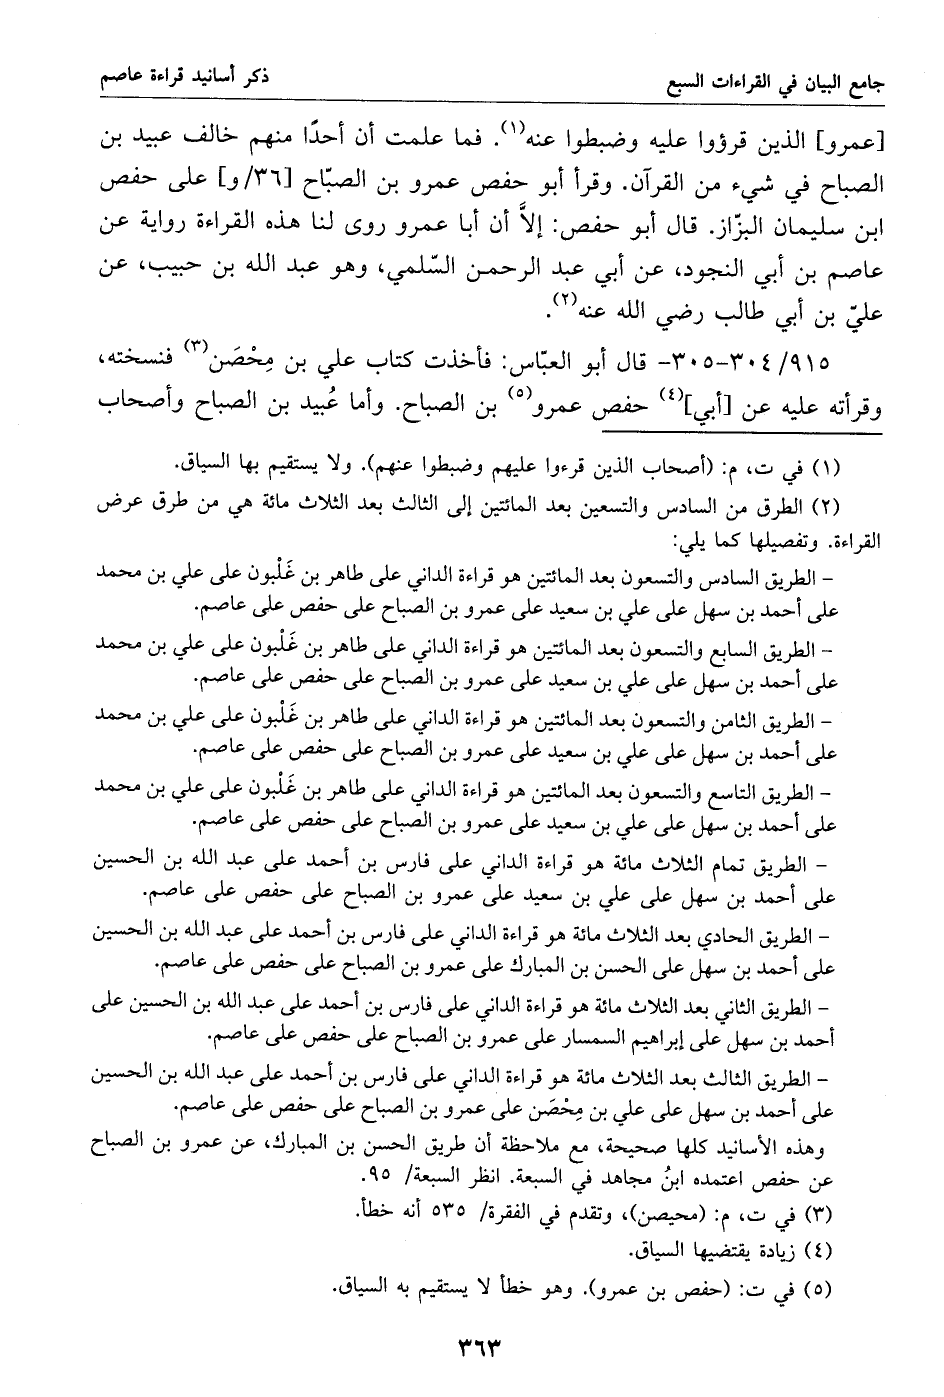 جامع البيان في القراءات السبع
ذكر أسانيد قراءة عاصم
[عمرو] الذين قرؤوا عليه وضبطوا عنه(١). فما علمت أن أحدًا منهم خالف عبيد بن
الصباح في شيء من القرآن. وقرأ أبو حفص عمرو بن الصبّاح [٣٦/و] على حفص
ابن سليمان البزّاز. قال أبو حفص: إلاَّ أن أبا عمرو روى لنا هذه القراءة رواية عن
عاصم بن أبي النجود، عن أبي عبد الرحمن السّلمي، وهو عبد الله بن حبيب، عن
عليّ بن أبي طالب رضي الله عنه(٢).
٩١٥/ ٣٠٤-٣٠٥- قال أبو العبّاس: فأخذت كتاب علي بن مِحْصَن(٣) فنسخته،
وقرأته عليه عن [أبي](٤) حفص عمرو(٥) بن الصباح. وأما عُبيد بن الصباح وأصحاب
(١) في ت، م: (أصحاب الذين قرءوا عليهم وضبطوا عنهم). ولا يستقيم بها السياق.
(٢) الطرق من السادس والتسعين بعد المائتين إلى الثالث بعد الثلاث مائة هي من طرق عرض
القراءة. وتفصيلها كما يلي:
- الطريق السادس والتسعون بعد المائتين هو قراءة الداني على طاهر بن غَلْبون على علي بن محمد
على أحمد بن سهل على علي بن سعيد على عمرو بن الصباح على حفص على عاصم.
- الطريق السابع والتسعون بعد المائتين هو قراءة الداني على طاهر بن غَلْبون على علي بن محمد
على أحمد بن سهل على علي بن سعيد على عمرو بن الصباح على حفص على عاصم.
- الطريق الثامن والتسعون بعد المائتين هو قراءة الداني على طاهر بن غَلْبون على علي بن محمد
على أحمد بن سهل على علي بن سعيد على عمرو بن الصباح على حفص على عاصم.
- الطريق التاسع والتسعون بعد المائتين هو قراءة الداني على طاهر بن غَلْبون على علي بن محمد
على أحمد بن سهل على علي بن سعيد على عمرو بن الصباح على حفص على عاصم.
- الطريق تمام الثلاث مائة هو قراءة الداني على فارس بن أحمد على عبد الله بن الحسين
على أحمد بن سهل على علي بن سعيد على عمرو بن الصباح على حفص على عاصم.
- الطريق الحادي بعد الثلاث مائة هو قراءة الداني على فارس بن أحمد على عبد الله بن الحسين
على أحمد بن سهل على الحسن بن المبارك على عمرو بن الصباح على حفص على عاصم.
- الطريق الثاني بعد الثلاث مائة هو قراءة الداني على فارس بن أحمد على عبد الله بن الحسين على
أحمد بن سهل على إبراهيم السمسار على عمرو بن الصباح على حفص على عاصم.
- الطريق الثالث بعد الثلاث مائة هو قراءة الداني على فارس بن أحمد على عبد الله بن الحسين
على أحمد بن سهل على علي بن مِحْصَن على عمرو بن الصباح على حفص على عاصم.
وهذه الأسانيد كلها صحيحة، مع ملاحظة أن طريق الحسن بن المبارك، عن عمرو بن الصباح
عن حفص اعتمده ابنُ مجاهد في السبعة. انظر السبعة/ ٩٥.
(٣) في ت، م: (محيصن)، وتقدم في الفقرة/ ٥٣٥ أنه خطأ.
(٤) زيادة يقتضيها السياق.
(٥) في ت: (حفص بن عمرو). وهو خطأ لا يستقيم به السياق.
٣٦٣